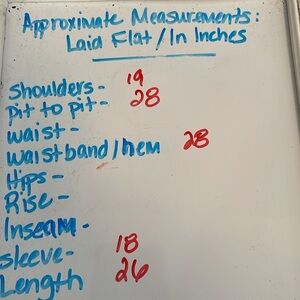 Approximate Measurements:
Laid Flat/In Inches
Shoulders- 19
pit to pit- 28
waist-
waistband/hem 28
Hips-
Rise-
Inseam-
sleeve- 18
Length 26